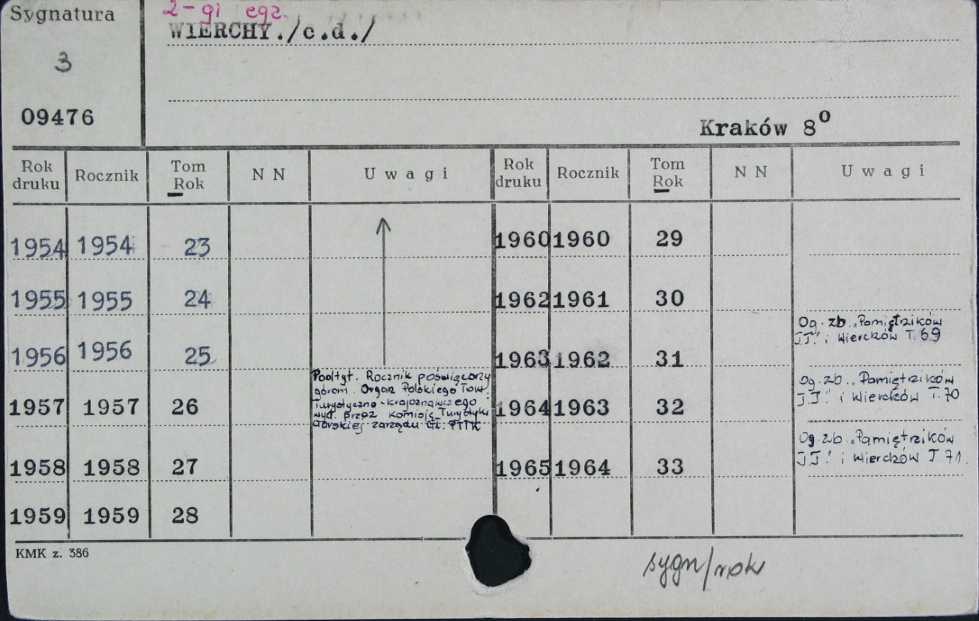 Sygnatura
2-gi egz.
WIERCHY./c.d./
3
09476
Kraków 8o
Rok druku Rocznik Tom Rok N N U w a g i Rok druku Rocznik Tom Rok N N U w a g i
1954 1954 23 1960 1960 29
1955 1955 24 1962 1961 30
1956 1956 25 1963 1962 31 Og. zb. "Pamiętników
TT." i Wierchów T. 69
Podtyt. Rocznik poświęcony
górom. Organ Polskiego Tow.
Turystyczno-krajoznawczego
wyd. przez komisję Turystyki
Górskiej zarządu Gł. PTTK
1957 1957 26 1964 1963 32 Og. zb. "Pamiętników
TT." i Wierchów T. 70
1958 1958 27 1965 1964 33 Og. zb. "Pamiętników
TT." i Wierchów T 71.
1959 1959 28
KMK z. 386
sygn/rok